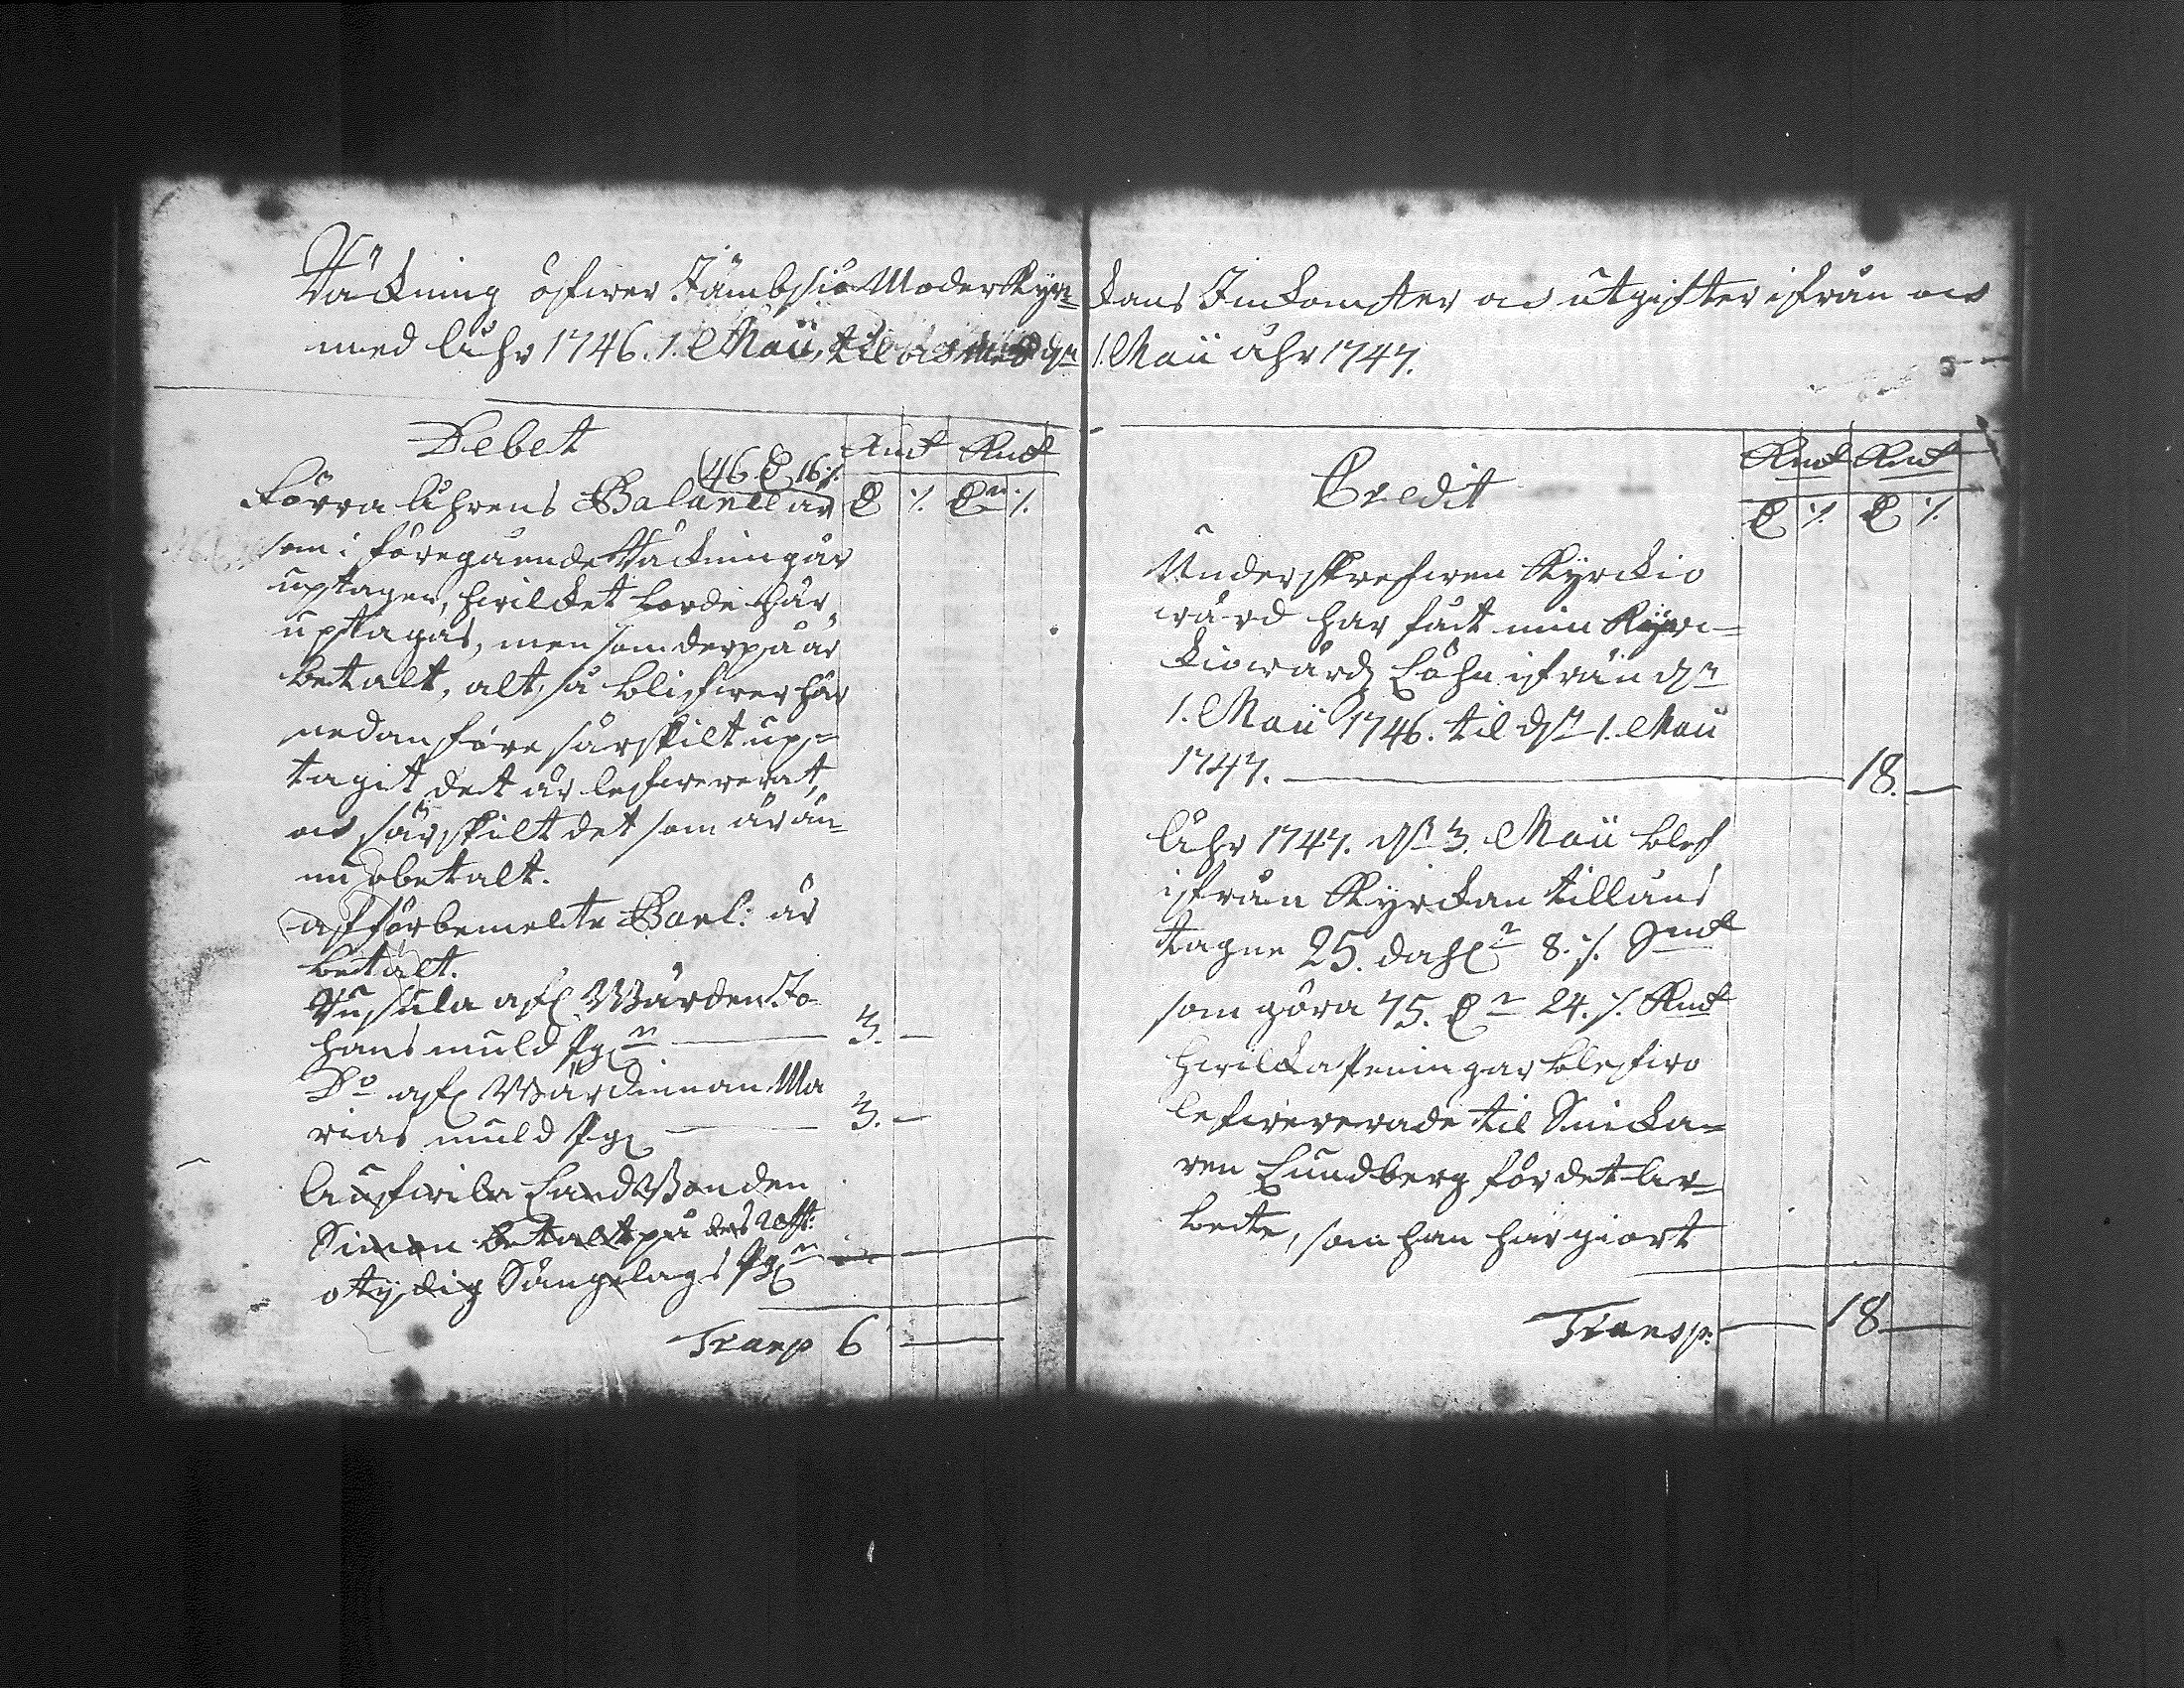 Räckning öfwer Jämbsiö Moder Kyr-
kans Inkomster och utgifter ifrån och
med åhr 1746. 1. Maii, til och med dn 1. Maii åhr 1747.
Debet
46 D 16 :/.
Kmt Kmt
Förra Åhrens Balance är D :/. Dr :/.
som i föregående Räckning är
uptagen, hwilcket borde här
uptagas, men som derpå är
betalt, alt så blifwer här
nedanföre särskilt up-
tagit det är lefwererat,
och särskilt det som är än-
nu obetalt.
af förbemelte Bael: är
betalt.
Ursula afl. Wärden Jo
hans muld Pgr 3. —
Do afl. Wärdinnan Ma
rias muld Pgr 3. —
Landbonden
Simon betalt på
otydig Sängelags Pgr
Transp 6 —
Credit
Kmt Kmt
D :/. D :/.
Underskrefwen Kyrckio
wärd har fådt min Kyrc-
kiowärdz Löhn ifrån dn
1. Maii 1746. til dn 1. Maii
1747. — 18. —
Åhr 1747. dn 3. Maii blef
ifrån Kyrckan tilläns
tagne 25. dahlr 8. :/. Smt
som göra 75. Dr 24. :/. Kmt
hwilcka Peningar blefwo
lefwererade til Snicka-
ren Lundberg för det Ar-
bete, som han här giort
Transp: — 18 —